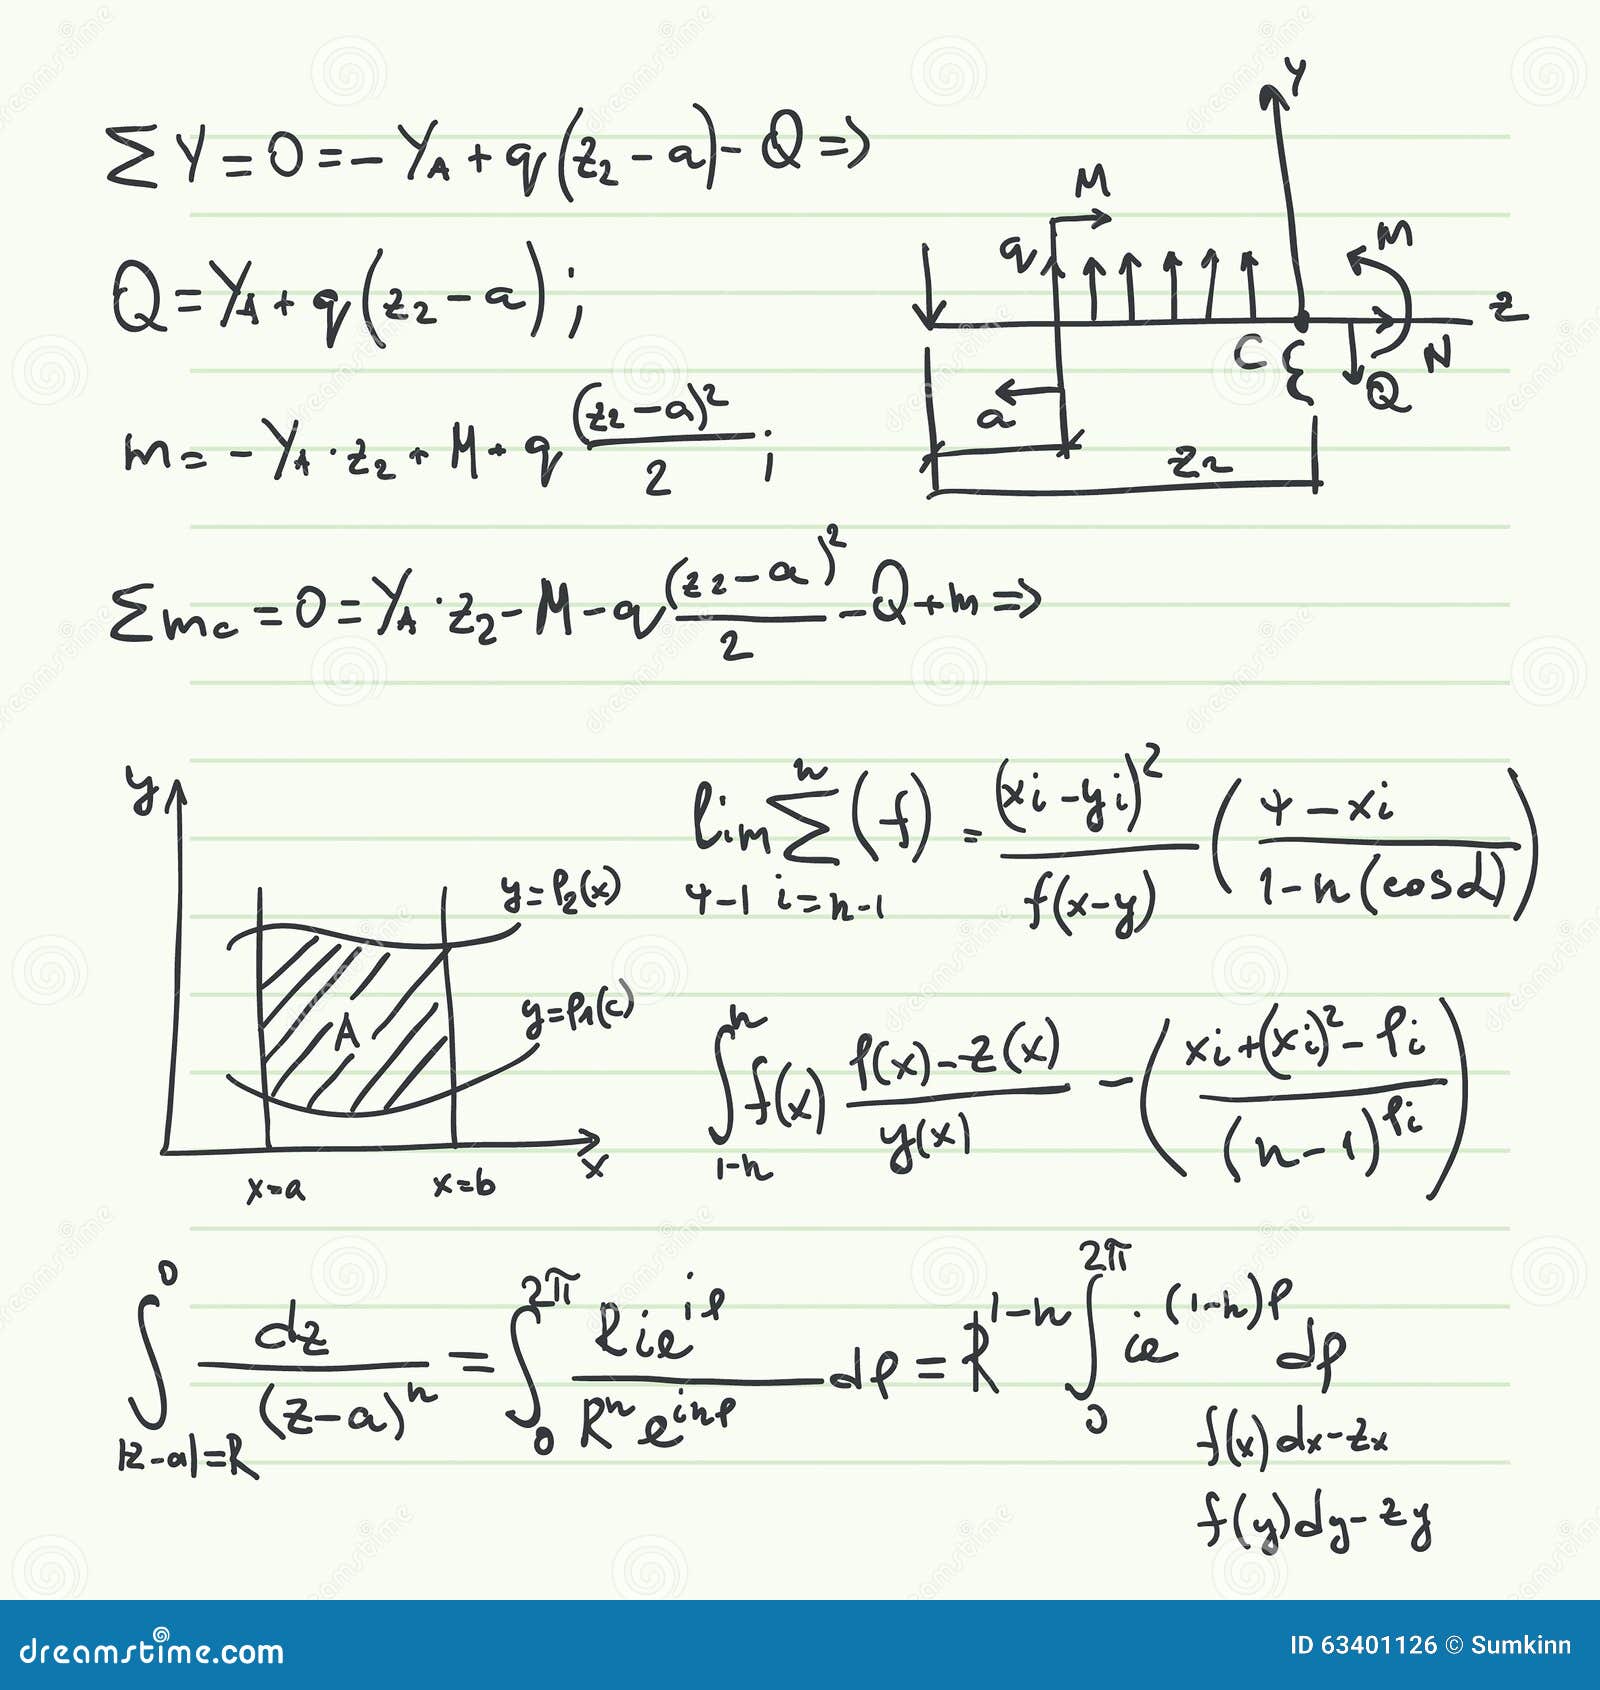 ∑ Y = 0 = - Y_A + q(z₂ - a) - Q ⇒
Q = Y_A + q(z₂ - a);
m = - Y_A · z₂ + M + q (z₂ - a)² / 2;
∑ m_c = 0 = Y_A · z₂ - M - q (z₂ - a)² / 2 - Q + m ⇒
Y
M
q
M
z
C
N
Q
a
z₂
y
y = ρ₂(x)
y = ρ₁(c)
A
x
x=a
x=b
lim ψ-1 ∑ n i=n-1 (f) = (xi - yi)² / f(x-y) ( ψ - xi / 1-n(cosα) )
∫ n 1-n f(x) ρ(x)-z(x) / y(x) - ( xi+(xi)² - ρi / (n-1)^ρi )
∫ 0 |z-a|=R dz / (z-a)ⁿ = ∫ 2π 0 Rie^iρ / Rⁿe^inρ dρ = R^1-n ∫ 2π 0 ie^(1-n)ρ dρ
f(x)dx-zx
f(y)dy-zy
dreamstime.com
ID 63401126 © Sumkinn